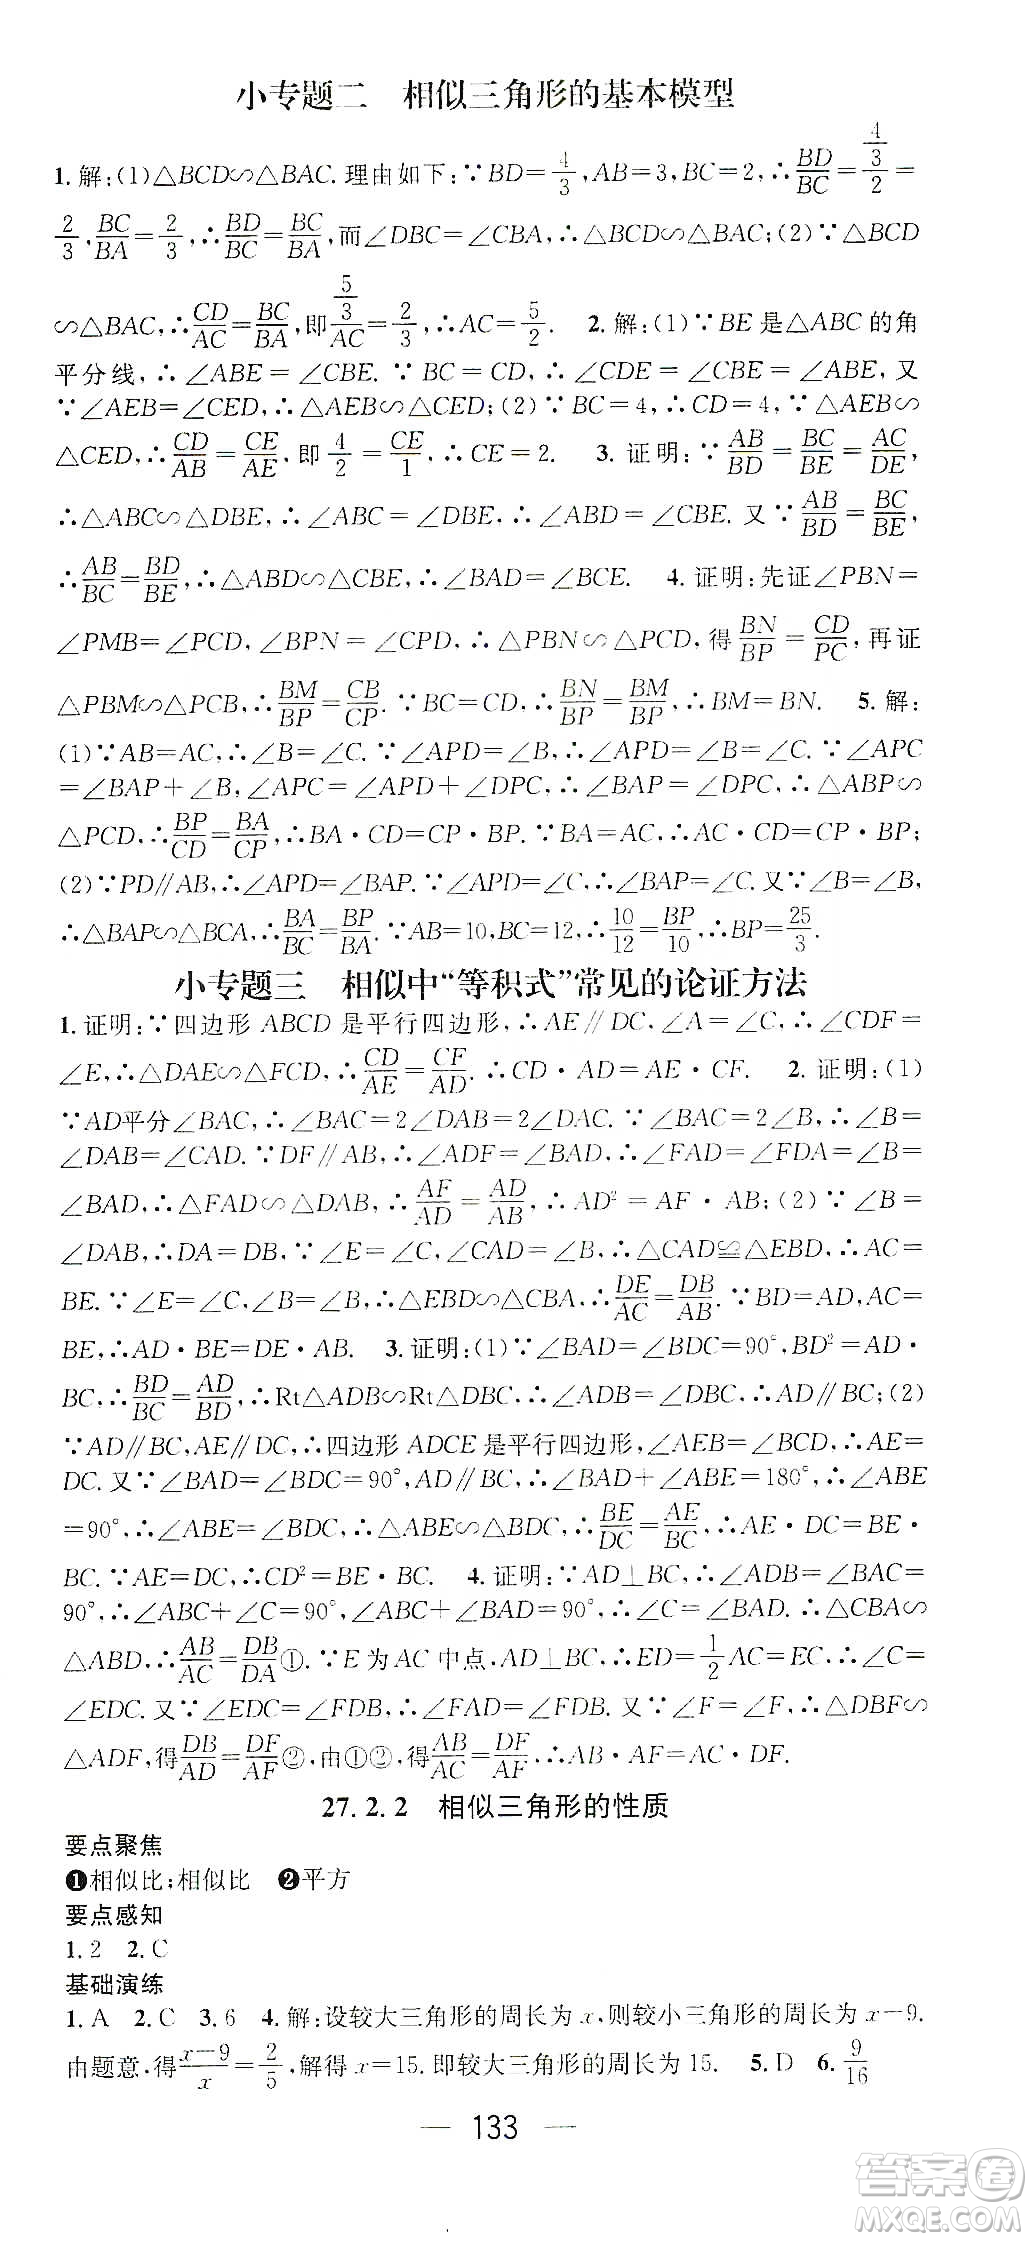 小专题二　相似三角形的基本模型
1.解:(1)△BCD∽△BAC.理由如下:∵BD=4/3,AB=3,BC=2,∴BD/BC=(4/3)/2=
2/3,BC/BA=2/3,∴BD/BC=BC/BA,而∠DBC=∠CBA,∴△BCD∽△BAC;(2)∵△BCD
∽△BAC,∴CD/AC=BC/BA,即(5/3)/AC=2/3,∴AC=5/2.　2.解:(1)∵BE是△ABC的角
平分线,∴∠ABE=∠CBE.∵BC=CD,∴∠CDE=∠CBE=∠ABE,又
∵∠AEB=∠CED,∴△AEB∽△CED;(2)∵BC=4,∴CD=4,∵△AEB∽
△CED,∴CD/AB=CE/AE,即4/2=CE/1,∴CE=2.　3.证明:∵AB/BD=BC/BE=AC/DE,
∴△ABC∽△DBE,∴∠ABC=∠DBE,∴∠ABD=∠CBE.又∵AB/BD=BC/BE,
∴AB/BC=BD/BE,∴△ABD∽△CBE,∴∠BAD=∠BCE.　4.证明:先证∠PBN=
∠PMB=∠PCD,∠BPN=∠CPD,∴△PBN∽△PCD,得BN/BP=CD/PC,再证
△PBM∽△PCB,∴BM/BP=CB/CP.∵BC=CD,∴BN/BP=BM/BP,∴BM=BN.　5.解:
(1)∵AB=AC,∴∠B=∠C.∵∠APD=∠B,∴∠APD=∠B=∠C.∵∠APC
=∠BAP+∠B,∠APC=∠APD+∠DPC,∴∠BAP=∠DPC,∴△ABP∽
△PCD,∴BP/CD=BA/CP,∴BA·CD=CP·BP.∵BA=AC,∴AC·CD=CP·BP;
(2)∵PD∥AB,∴∠APD=∠BAP.∵∠APD=∠C,∴∠BAP=∠C.又∵∠B=∠B,
∴△BAP∽△BCA,∴BA/BC=BP/BA.∵AB=10,BC=12,∴10/12=BP/10,∴BP=25/3.
小专题三　相似中“等积式”常见的论证方法
1.证明:∵四边形ABCD是平行四边形,∴AE∥DC,∠A=∠C,∴∠CDF=
∠E,∴△DAE∽△FCD,∴CD/AE=CF/AD.∴CD·AD=AE·CF.　2.证明:(1)
∵AD平分∠BAC,∴∠BAC=2∠DAB=2∠DAC.∵∠BAC=2∠B,∴∠B=
∠DAB=∠CAD.∵DF∥AB,∴∠ADF=∠BAD,∴∠FAD=∠FDA=∠B=
∠BAD,∴△FAD∽△DAB,∴AF/AD=AD/AB,∴AD²=AF·AB;(2)∵∠B=
∠DAB,∴DA=DB,∵∠E=∠C,∠CAD=∠B,∴△CAD≌△EBD,∴AC=
BE.∵∠E=∠C,∠B=∠B,∴△EBD∽△CBA,∴DE/AC=DB/AB.∵BD=AD,AC=
BE,∴AD·BE=DE·AB.　3.证明:(1)∵∠BAD=∠BDC=90°,BD²=AD·
BC,∴BD/BC=AD/BD,∴Rt△ADB∽Rt△DBC,∴∠ADB=∠DBC,∴AD∥BC;(2)
∵AD∥BC,AE∥DC,∴四边形ADCE是平行四边形,∠AEB=∠BCD,∴AE=
DC.又∵∠BAD=∠BDC=90°,AD∥BC,∴∠BAD+∠ABE=180°,∴∠ABE
=90°,∴∠ABE=∠BDC,∴△ABE∽△BDC,∴BE/DC=AE/BC,∴AE·DC=BE·
BC.∵AE=DC,∴CD²=BE·BC.　4.证明:∵AD⊥BC,∴∠BDA=∠BAC=
90°,∴∠ABC+∠C=90°,∠ABC+∠BAD=90°,∴∠C=∠BAD.∴△CBA∽
△ABD,∴AB/AC=DB/DA①.∵E为AC中点,AD⊥BC,∴ED=1/2AC=EC,∴∠C=
∠EDC.又∵∠EDC=∠FDB,∴∠FAD=∠FDB.又∵∠F=∠F,∴△DBF∽
△ADF,得DB/AD=DF/AF②,由①②,得AB/AC=DF/AF,∴AB·AF=AC·DF.
27.2.2　相似三角形的性质
要点聚焦
❶相似比;相似比　❷平方
要点感知
1.2　2.C
基础演练
1.A　2.C　3.6　4.解:设较大三角形的周长为x,则较小三角形的周长为x-9.
由题意,得(x-9)/x=2/5,解得x=15.即较大三角形的周长为15.　5.D　6.9/16
— 133 —
答案圈
MXQE.COM